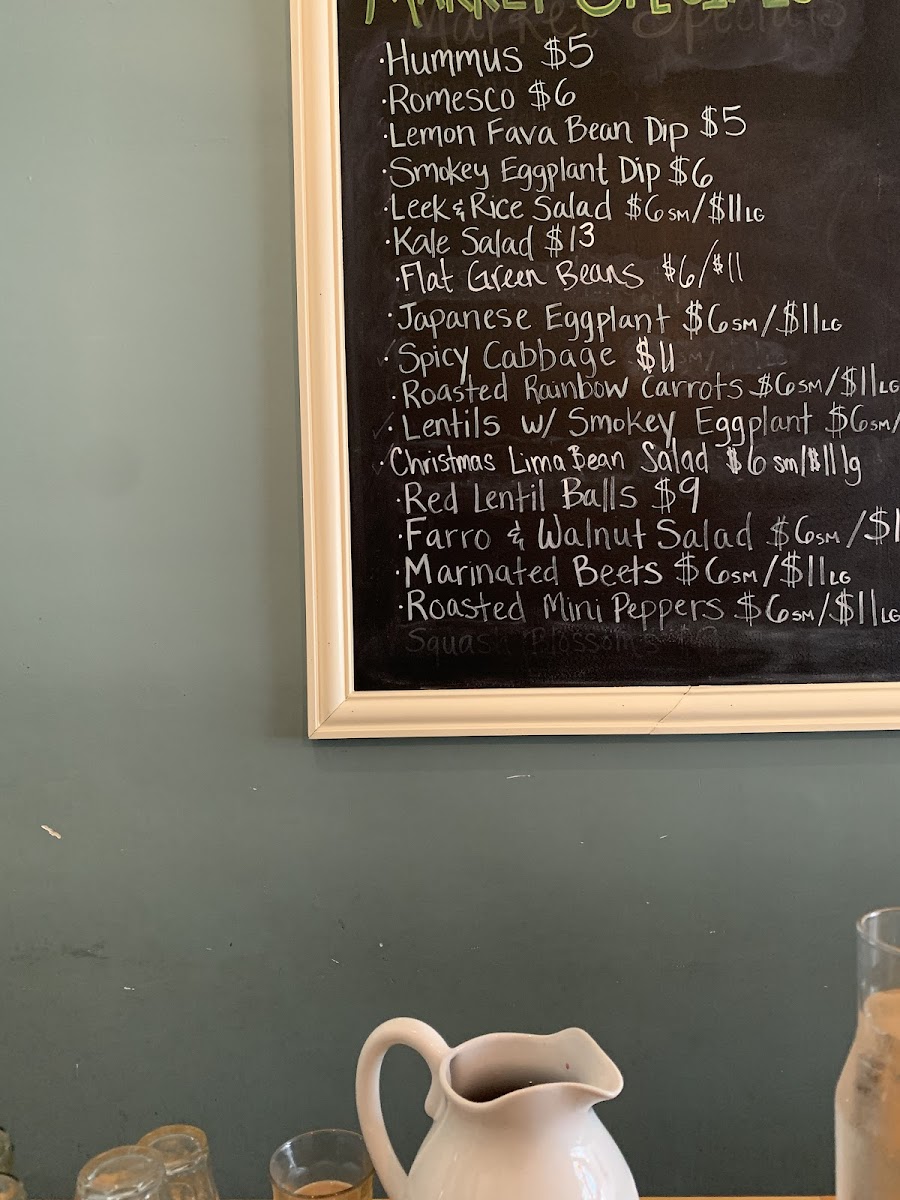 Market Specials
·Hummus $5
·Romesco $6
·Lemon Fava Bean Dip $5
·Smokey Eggplant Dip $6
·Leek & Rice Salad $6 SM/$11 LG
·Kale Salad $13
·Flat Green Beans $6/$11
·Japanese Eggplant $6 SM/$11 LG
·Spicy Cabbage $11
·Roasted Rainbow Carrots $6 SM/$11 LG
·Lentils w/ Smokey Eggplant $6 SM/
·Christmas Lima Bean Salad $6 sm/$11 lg
·Red Lentil Balls $9
·Farro & Walnut Salad $6 SM/$1
·Marinated Beets $6 SM/$11 LG
·Roasted Mini Peppers $6 SM/$11 LG
Squash Blossoms